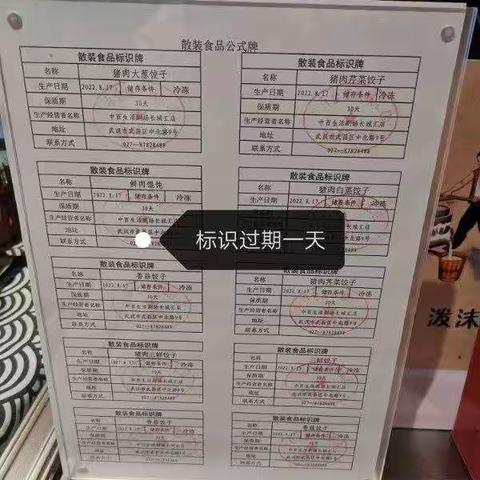 散装食品公式牌
散装食品标识牌
名称 猪肉大葱饺子
生产日期 2022.8.17 储存条件 冷冻
保质期 30天
生产经营者名称 中百生活剧场长城汇店
地址 武汉市武昌区中北路9号
联系方式 027--87828488
散装食品标识牌
名称 猪肉芹菜饺子
生产日期 2022.8.17 储存条件 冷冻
保质期 30天
生产经营者名称 中百生活剧场长城汇店
地址 武汉市武昌区中北路9号
联系方式 027--87828488
散装食品标识牌
名称 鲜肉馄饨
生产日期 2022.8.17 储存条件 冷冻
保质期 30天
生产经营者名称 中百生活剧场长城汇店
地址
联系方式
名称 猪肉白菜饺子
生产日期 2022.8.17 储存条件 冷冻
标识过期一天
散装食品标识牌
名称 香菇饺子
生产日期 2022.8.17 储存条件 冷冻
保质期 30天
生产经营者名称 中百生活剧场长城汇店
地址 武汉市武昌区中北路9号
联系方式 027--87828488
名称 猪肉芹菜饺子
生产日期 2022.8.17 储存条件 冷冻
保质期 30天
生产经营者名称 中百生活剧场长城汇店
地址 武汉市武昌区中北路9号
联系方式 027--87828488
散装食品标识牌
名称 猪肉三鲜饺子
生产日期 储存条件 冷冻
保质期 30天
生产经营者名称 中百生活剧场长城汇店
地址 武汉市武昌区中北路9号
联系方式 027--87828488
散装食品标识牌
名称 三鲜饺子
生产日期 2022.8.17 储存条件 冷冻
保质期
生产经营者名称 中百生活剧场长城汇店
地址 武汉市武昌区中北路9号
联系方式 027--87828488
散装食品标识牌
名称 香菇饺子
生产日期 2022.8.17 储存条件 冷冻
保质期 30天
生产经营者名称 中百生活剧场长城汇店
地址 武汉市武昌区中北路9号
联系方式 027--87828488
散装食品标识牌
名称 香菇饺子
生产日期 2022.8.17 储存条件 冷冻
保质期 30天
生产经营者名称 中百生活剧场长城汇店
地址 武汉市武昌区中北路9号
联系方式 027--87828488
泼沫